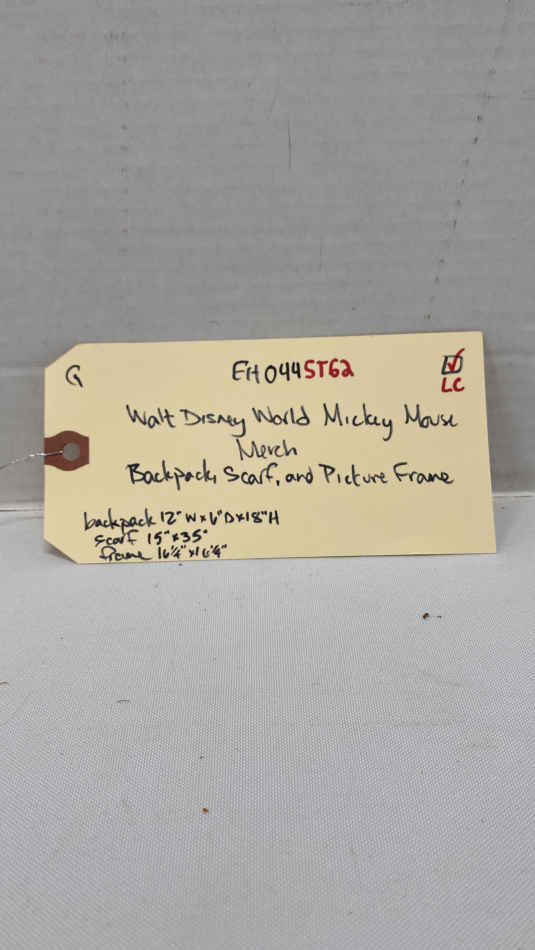 G
EH044ST62
LC
Walt Disney World Mickey Mouse
Merch
Backpack, Scarf, and Picture Frame
backpack 12" W x 6" D x 18" H
scarf 15" x 35"
frame 16¼" x 16¼"